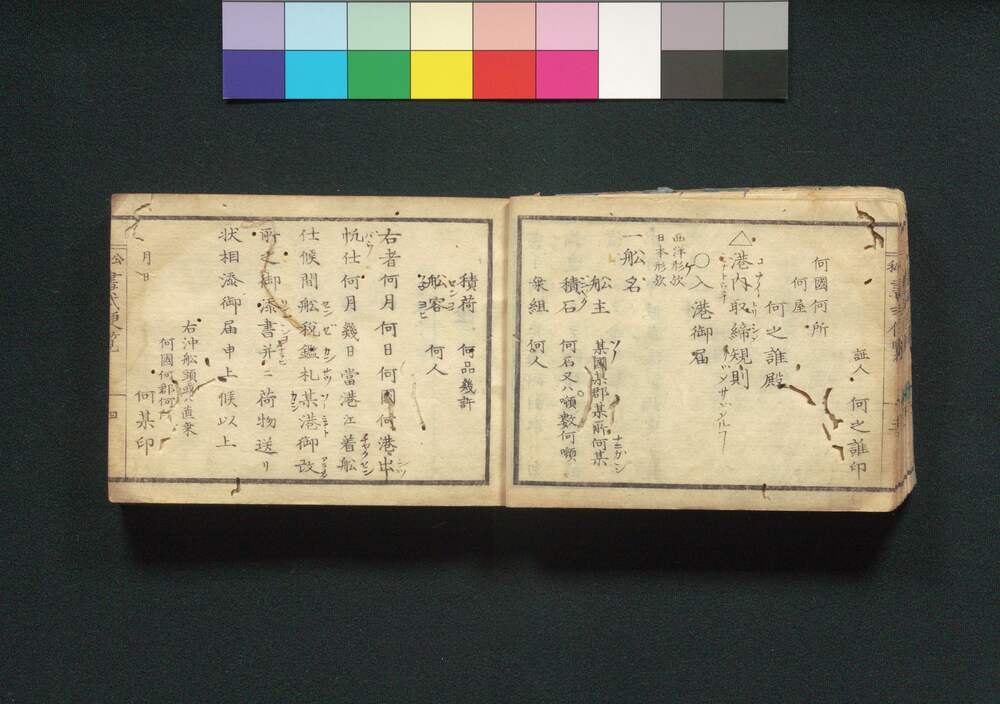 証人 何之誰印
何國何所
何屋
何之誰殿
△港内取締規則
○入港御届
西洋形欤
日本形欤
一舩名
舩主 某國某郡某所何某
積石 何石又ハ噸数何噸
乗組 何人
積荷 何品幾許
舩客 何人
右者何月何日何國何港出
帆仕何月幾日當港江着舩
仕候間舩税鑑札某港御改
所之御添書并ニ荷物送リ
状相添御届申上候以上
月日
右沖舩頭或ハ直乗
何國何郡何
何某印
四